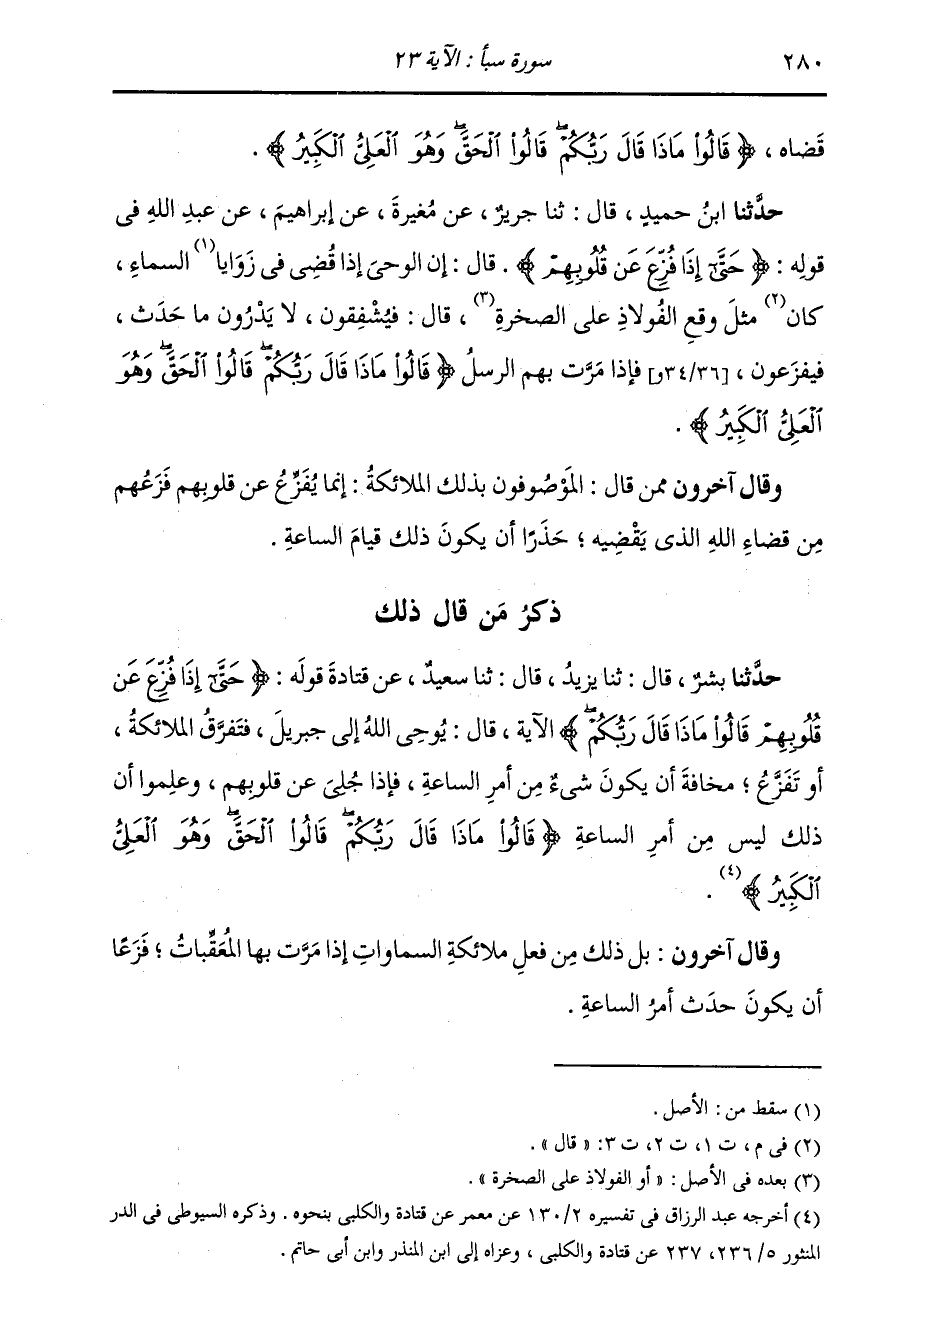 ٢٨٠ سورة سبأ : الآية ٢٣
قَضاه ، ﴿ قَالُواْ مَاذَا قَالَ رَبُّكُمْۖ قَالُواْ ٱلْحَقَّۖ وَهُوَ ٱلْعَلِىُّ ٱلْكَبِيرُ ﴾ .
حدَّثنا ابنُ حميدٍ ، قال : ثنا جريرٌ ، عن مُغيرةَ ، عن إبراهيمَ ، عن عبدِ اللهِ فى
قولِه : ﴿ حَتَّىٰٓ إِذَا فُزِّعَ عَن قُلُوبِهِمْ ﴾ . قال : إن الوحىَ إذا قُضِى فى زَوَايا(١) السماءِ ،
كان(٢) مثلَ وقعِ الفُولاذِ على الصخرةِ(٣) ، قال : فيُشْفِقون ، لا يَدْرُون ما حَدَث ،
فيفزَعون ، [٣٤/٣٦و] فإذا مَرَّت بهم الرسلُ ﴿ قَالُواْ مَاذَا قَالَ رَبُّكُمْۖ قَالُواْ ٱلْحَقَّۖ وَهُوَ
ٱلْعَلِىُّ ٱلْكَبِيرُ ﴾ .
وقال آخرون ممن قال : المَوْصُوفون بذلك الملائكةُ : إنما يُفَزَّعُ عن قلوبِهم فَزَعُهم
مِن قضاءِ اللهِ الذى يَقْضِيه ؛ حَذَرًا أن يكونَ ذلك قيامَ الساعةِ .
ذكرُ مَن قال ذلك
حدَّثنا بشرٌ ، قال : ثنا يزيدُ ، قال : ثنا سعيدٌ ، عن قتادةَ قولَه : ﴿ حَتَّىٰٓ إِذَا فُزِّعَ عَن
قُلُوبِهِمْ قَالُواْ مَاذَا قَالَ رَبُّكُمْۖ ﴾ الآية ، قال : يُوحِى اللهُ إلى جبريلَ ، فتَفرَّقُ الملائكةُ ،
أو تَفَزَّعُ ؛ مخافةَ أن يكونَ شىءٌ مِن أمرِ الساعةِ ، فإذا جُلِىَ عن قلوبِهم ، وعلِموا أن
ذلك ليس مِن أمرِ الساعةِ ﴿ قَالُواْ مَاذَا قَالَ رَبُّكُمْۖ قَالُواْ ٱلْحَقَّۖ وَهُوَ ٱلْعَلِىُّ
ٱلْكَبِيرُ ﴾(٤) .
وقال آخرون : بل ذلك مِن فعلِ ملائكةِ السماواتِ إذا مَرَّت بها المُعَقِّباتُ ؛ فَزَعًا
أن يكونَ حدَث أمرُ الساعةِ .
(١) سقط من : الأصل .
(٢) فى م ، ت ١، ت ٢، ت ٣: « قال » .
(٣) بعده فى الأصل : « أو الفولاذ على الصخرة » .
(٤) أخرجه عبد الرزاق فى تفسيره ١٣٠/٢ عن معمر عن قتادة والكلبى بنحوه . وذكره السيوطى فى الدر
المنثور ٥/ ٢٣٦، ٢٣٧ عن قتادة والكلبى ، وعزاه إلى ابن المنذر وابن أبى حاتم .